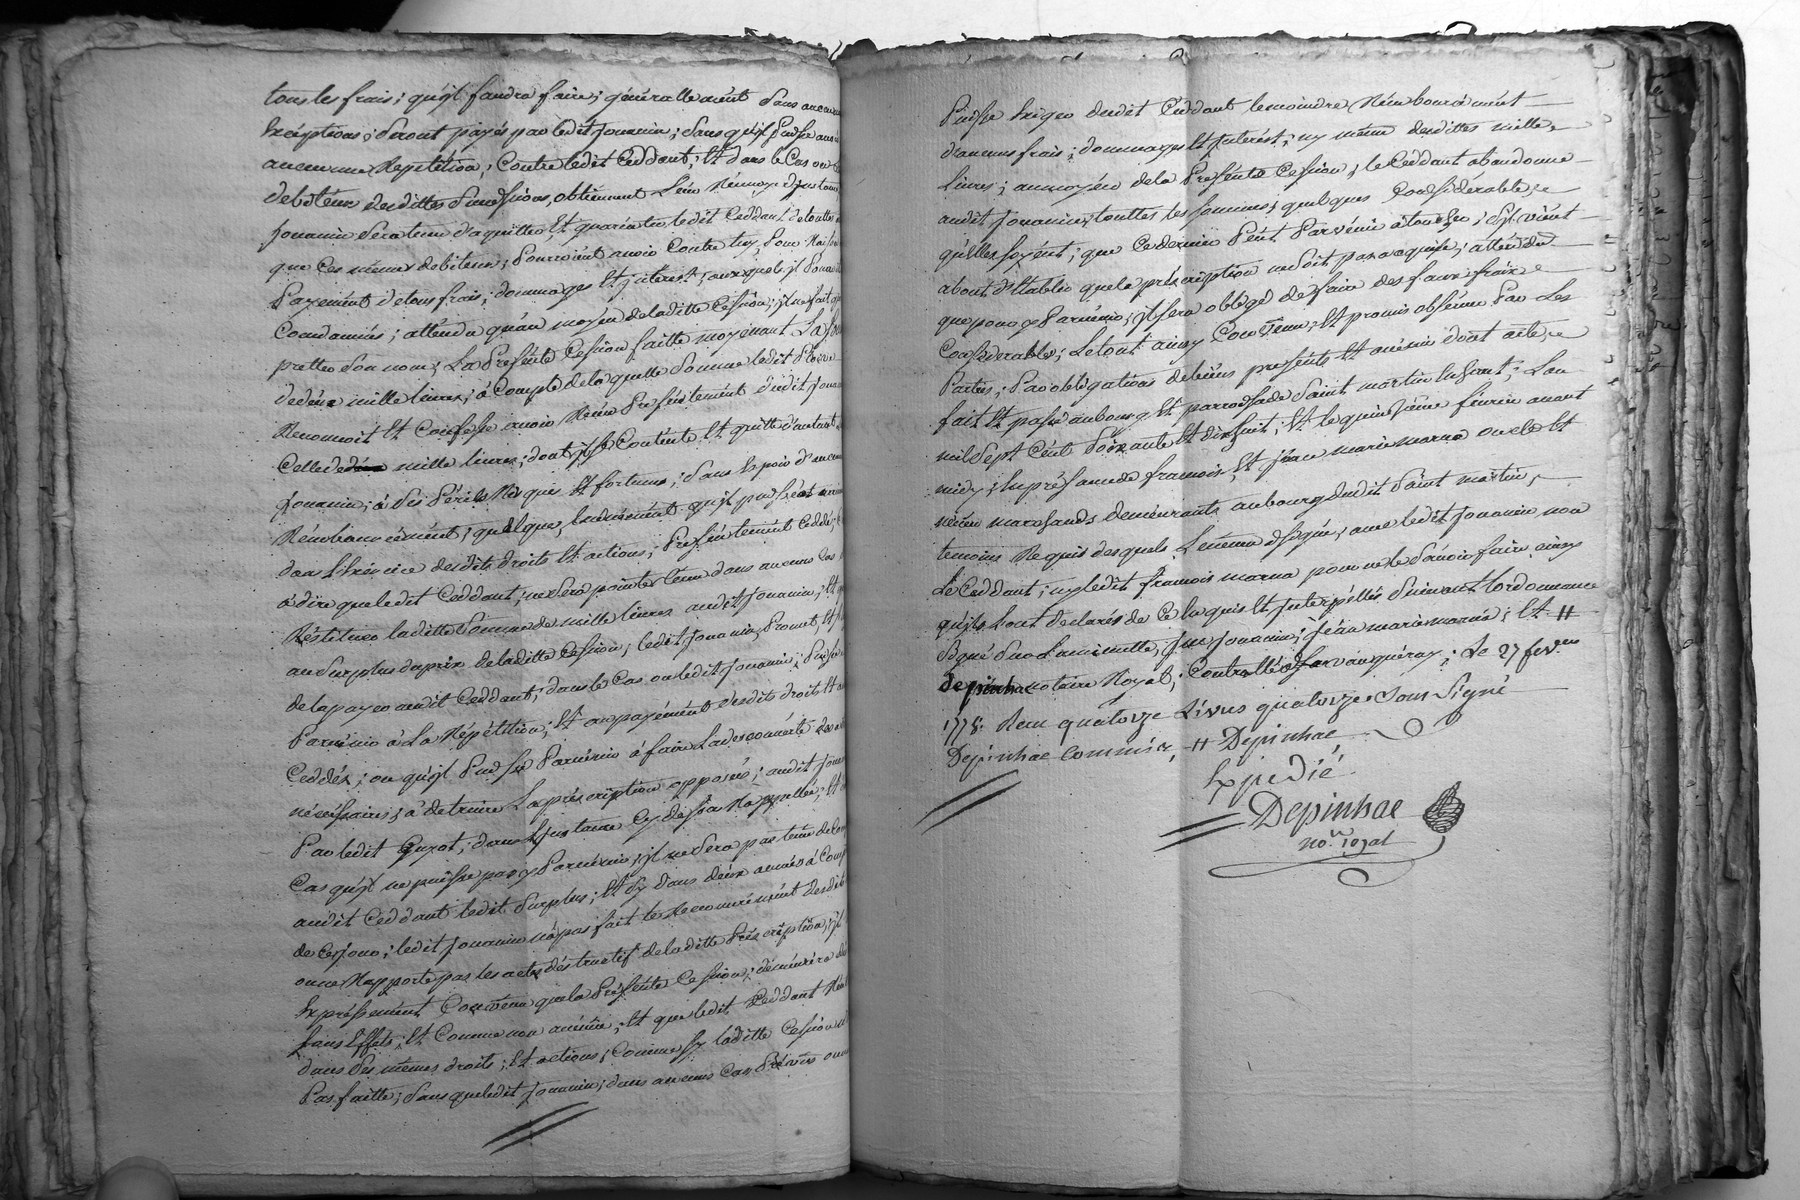 tous les frais; qu'jl faudra faire; généralle ment sans aucune
Excéptions; seront payés par ledit jouanin; sans qu'jl Puisse avoir
aucunne Repétition; Contre ledit Ceddant; Et dans le Cas ou les
debiteurs desdittes Successions, obtiennent
jouanin sera tenu d'aquitter, Et guarentir ledit Ceddant de touttes
que Ces mémes debiteurs; Pourroient avoir Contre luy, Pour Raison
Payement de tous frais; dommages Et jnterest; auxquels jl Pourroit
Condamnés; atténdu qu'au moyén de laditte Cession; jl ne fait que
pretter son nom; La Presénte Cession faitte moyénant La somme
de deux mille livres; à Compte de laquelle somme ledit
Reconnoit Et Confesse avoir Reçu Presentement dudit jouanin
Celle de mille livres; dont jl se Conténte Et quitte d'autant
jouanin; à ses Périls Risques Et fortunes; sans Espoir d'aucun
Rémboursément; quelque Evénément qu'jl puisse
dans l'éxércice desdits droits Et actions; Presentement Ceddés;
à dire que ledit Ceddant; ne sera point Tenu dans aucuns Cas
Réstituer laditte Somme de mille livres audit jouanin; Et
au surplus du prix de laditte Cession; ledit jouanin, Promet, Et
de la payer audit Ceddant; dans le Cas ou ledit jouanin; Puisse
Parvénir à La Répétition; Et au payément desdits droits Et
Ceddés; ou qu'jl Puisse Parvénir à faire La descouverte
nécéssaires à détruire La préscription opposée; audit
Par ledit Guyot; dans L'jnstance Cy dessus Rappellée; Et
Cas qu'jl ne puisse pas y Parvénir; jl ne sera pas tenu de
audit Ceddant ledit surplus; Et sy dans deux années à Compter
de Ce jour; ledit jouanin n'a pas fait le Recouvrément desdits
ou ne Rapporte pas les actes déstructif de laditte Préscription; jl
Expréssément Convenu que la Présénte Cession; déméurera
sans Effets; Et Comme non avénue; Et que ledit Ceddant
dans ses mémes droits; Et actions; Comme sy laditte Cession
Pas faitte; sans que ledit jouanin; dans aucuns Cas Prévus ou
Puisse Exiger dudit Ceddant le moindre Rémboursément
d'aucuns frais; dommages Et jnterést; ny méme desdittes mille
livres; au moyén de la Presénte Cession; le Ceddant abandonne
audit jouanin, touttes les sommes quelques Considérables
qu'elles soyént; que Ce dernier Péut Parvénir à toucher; s'jl viént
about d'Etablir que la préscription ne soit pas acquise; atténdu
que pour y Parvénir; jl sera obligé de faire des faux fraix
Considerables; Le tout ainsy Convénu; Et promis obsérver Par Les
Parties; Par obligations de biéns présents Et avénir dont acte
fait Et passé au bourg Et parroisse de Saint martin ; L'an
mil sept Cént soixante Et dix huit; Et le quinsiéme févrié avant
midy; En présance de françois, Et jean marie marna oncle Et
néveu marchands deméurants au bourg dudit Saint martin,
temoins Requis desquels Le neveu a signé, avec ledit jouanin non
Le Ceddant; ny ledit françois marna pour ne le sçavoir faire ainsy
qu'jls L'ont declarés de Ce Enquis Et jnterpéllés suivant L'ordonnance
Signé sur La minutte, jouanin; jéan marie marna; Et
depinhac notaire Royal; Controllé ; Le 27 fevrier
1778. Reçu quatorze Livres quatorze sous Signé
Depinhac Commis, Depinhac
Expedié
Depinhac
nore. royal